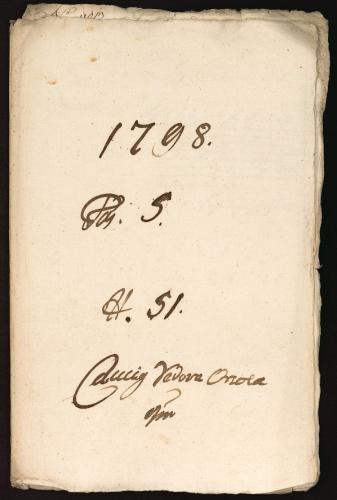 1798.
Pos. 5.
H. 51.
Caucig Vedova Orsola